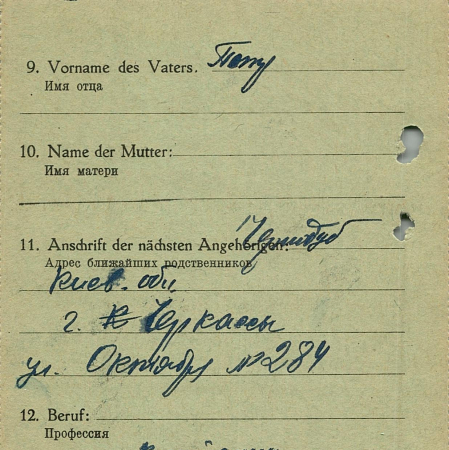 9. Vorname des Vaters.
Имя отца
10. Name der Mutter:
Имя матери
11. Anschrift der nächsten Angehörigen:
Адрес ближайших родственников
Киев. обл.
г. Черкассы
ул. Октября №284
12. Beruf:
Профессия